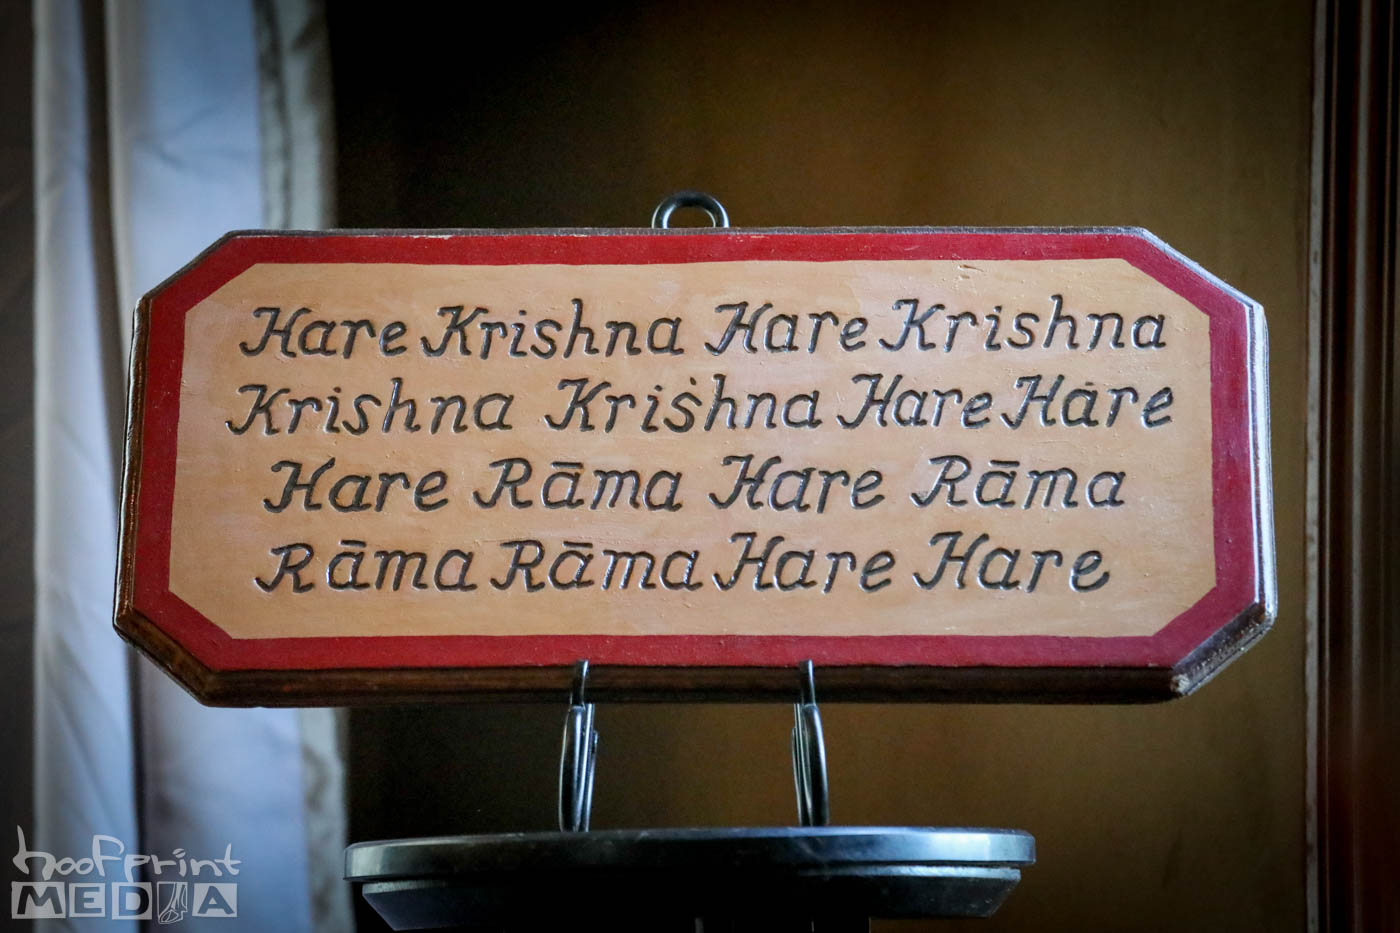 Hare Krishna Hare Krishna
Krishna Krishna Hare Hare
Hare Rāma Hare Rāma
Rāma Rāma Hare Hare
hoofprint
MEDIA